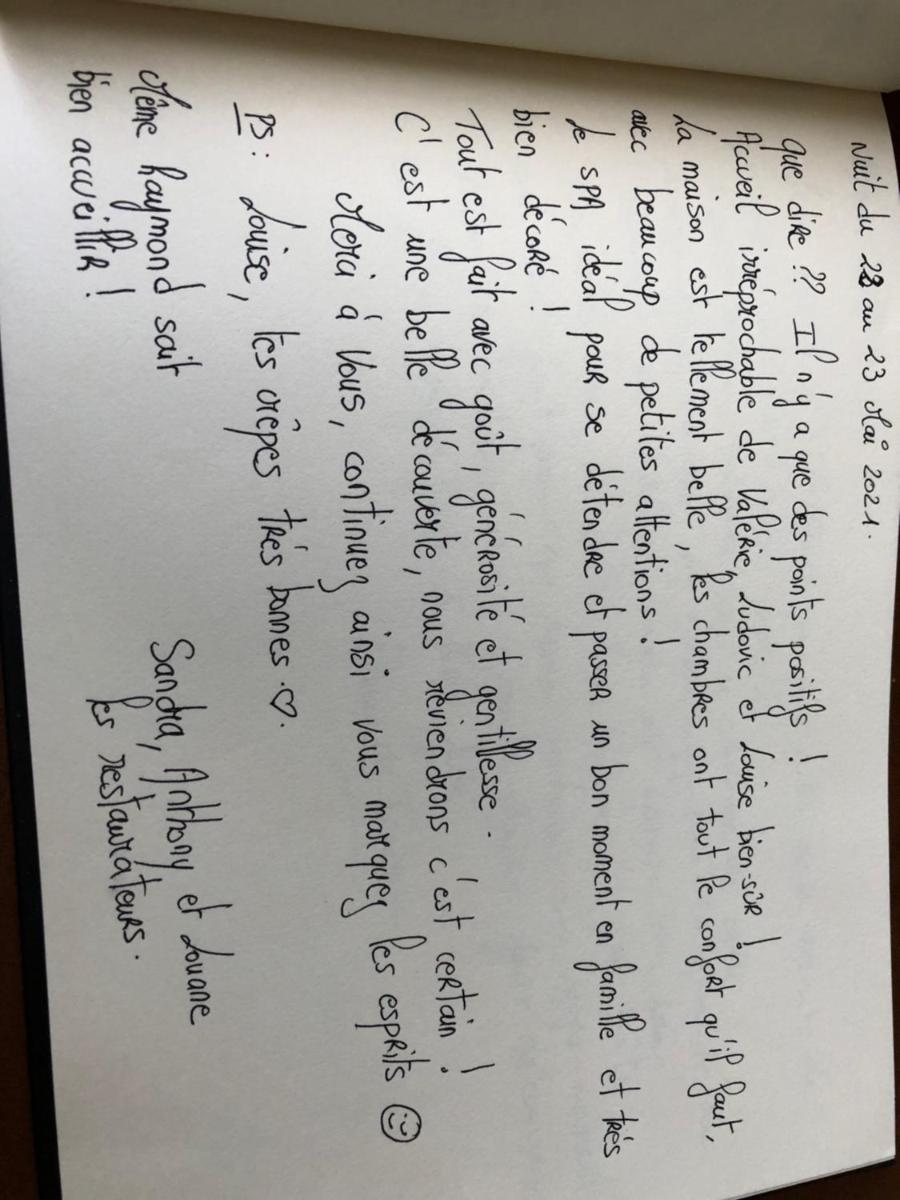 Nuit du 22 au 23 Mai 2021.
Que dire ?? Il n'y a que des points positifs !
Accueil irréprochable de Valérie, Ludovic et Louise bien-sûr !
La maison est tellement belle, les chambres ont tout le confort qu'il faut,
avec beaucoup de petites attentions !
Le SPA idéal pour se détendre et passer un bon moment en famille et très
bien décoré !
Tout est fait avec goût, générosité et gentillesse.
C'est une belle découverte, nous reviendrons c'est certain !
Merci à Vous, continuez ainsi vous marquez les esprits ☺
PS : Louise, tes crêpes très bonnes ♡.
Même Raymond sait
bien accueillir !
Sandra, Anthony et Louane
les restaurateurs.